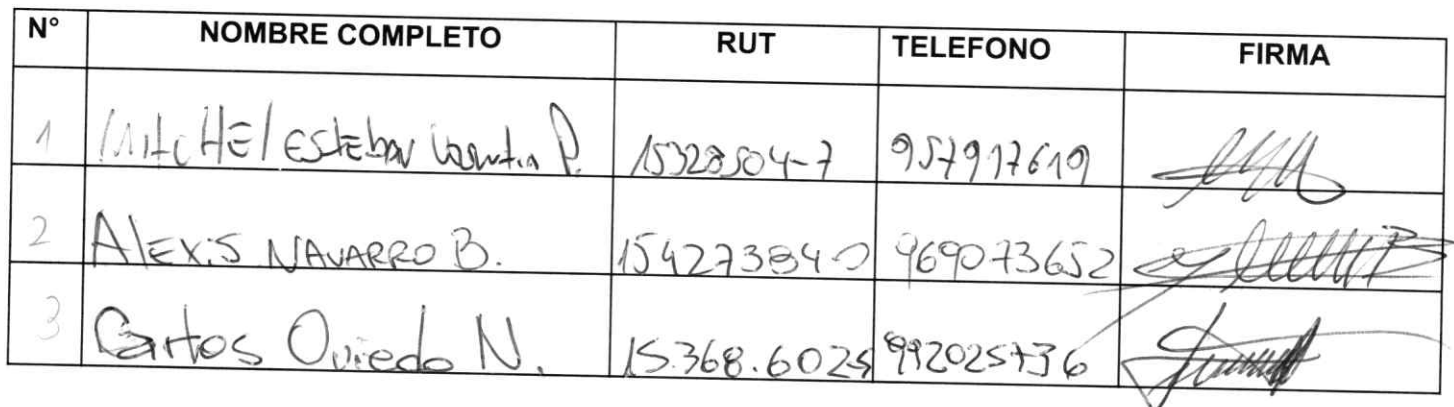 N° NOMBRE COMPLETO RUT TELEFONO FIRMA
1 MitcHEl EstEban P. 15328504-7 957917619
2 AlExis NAVARRO B. 15427384-0 969073652
3 Carlos Oviedo N. 15.368.602-5 992025736